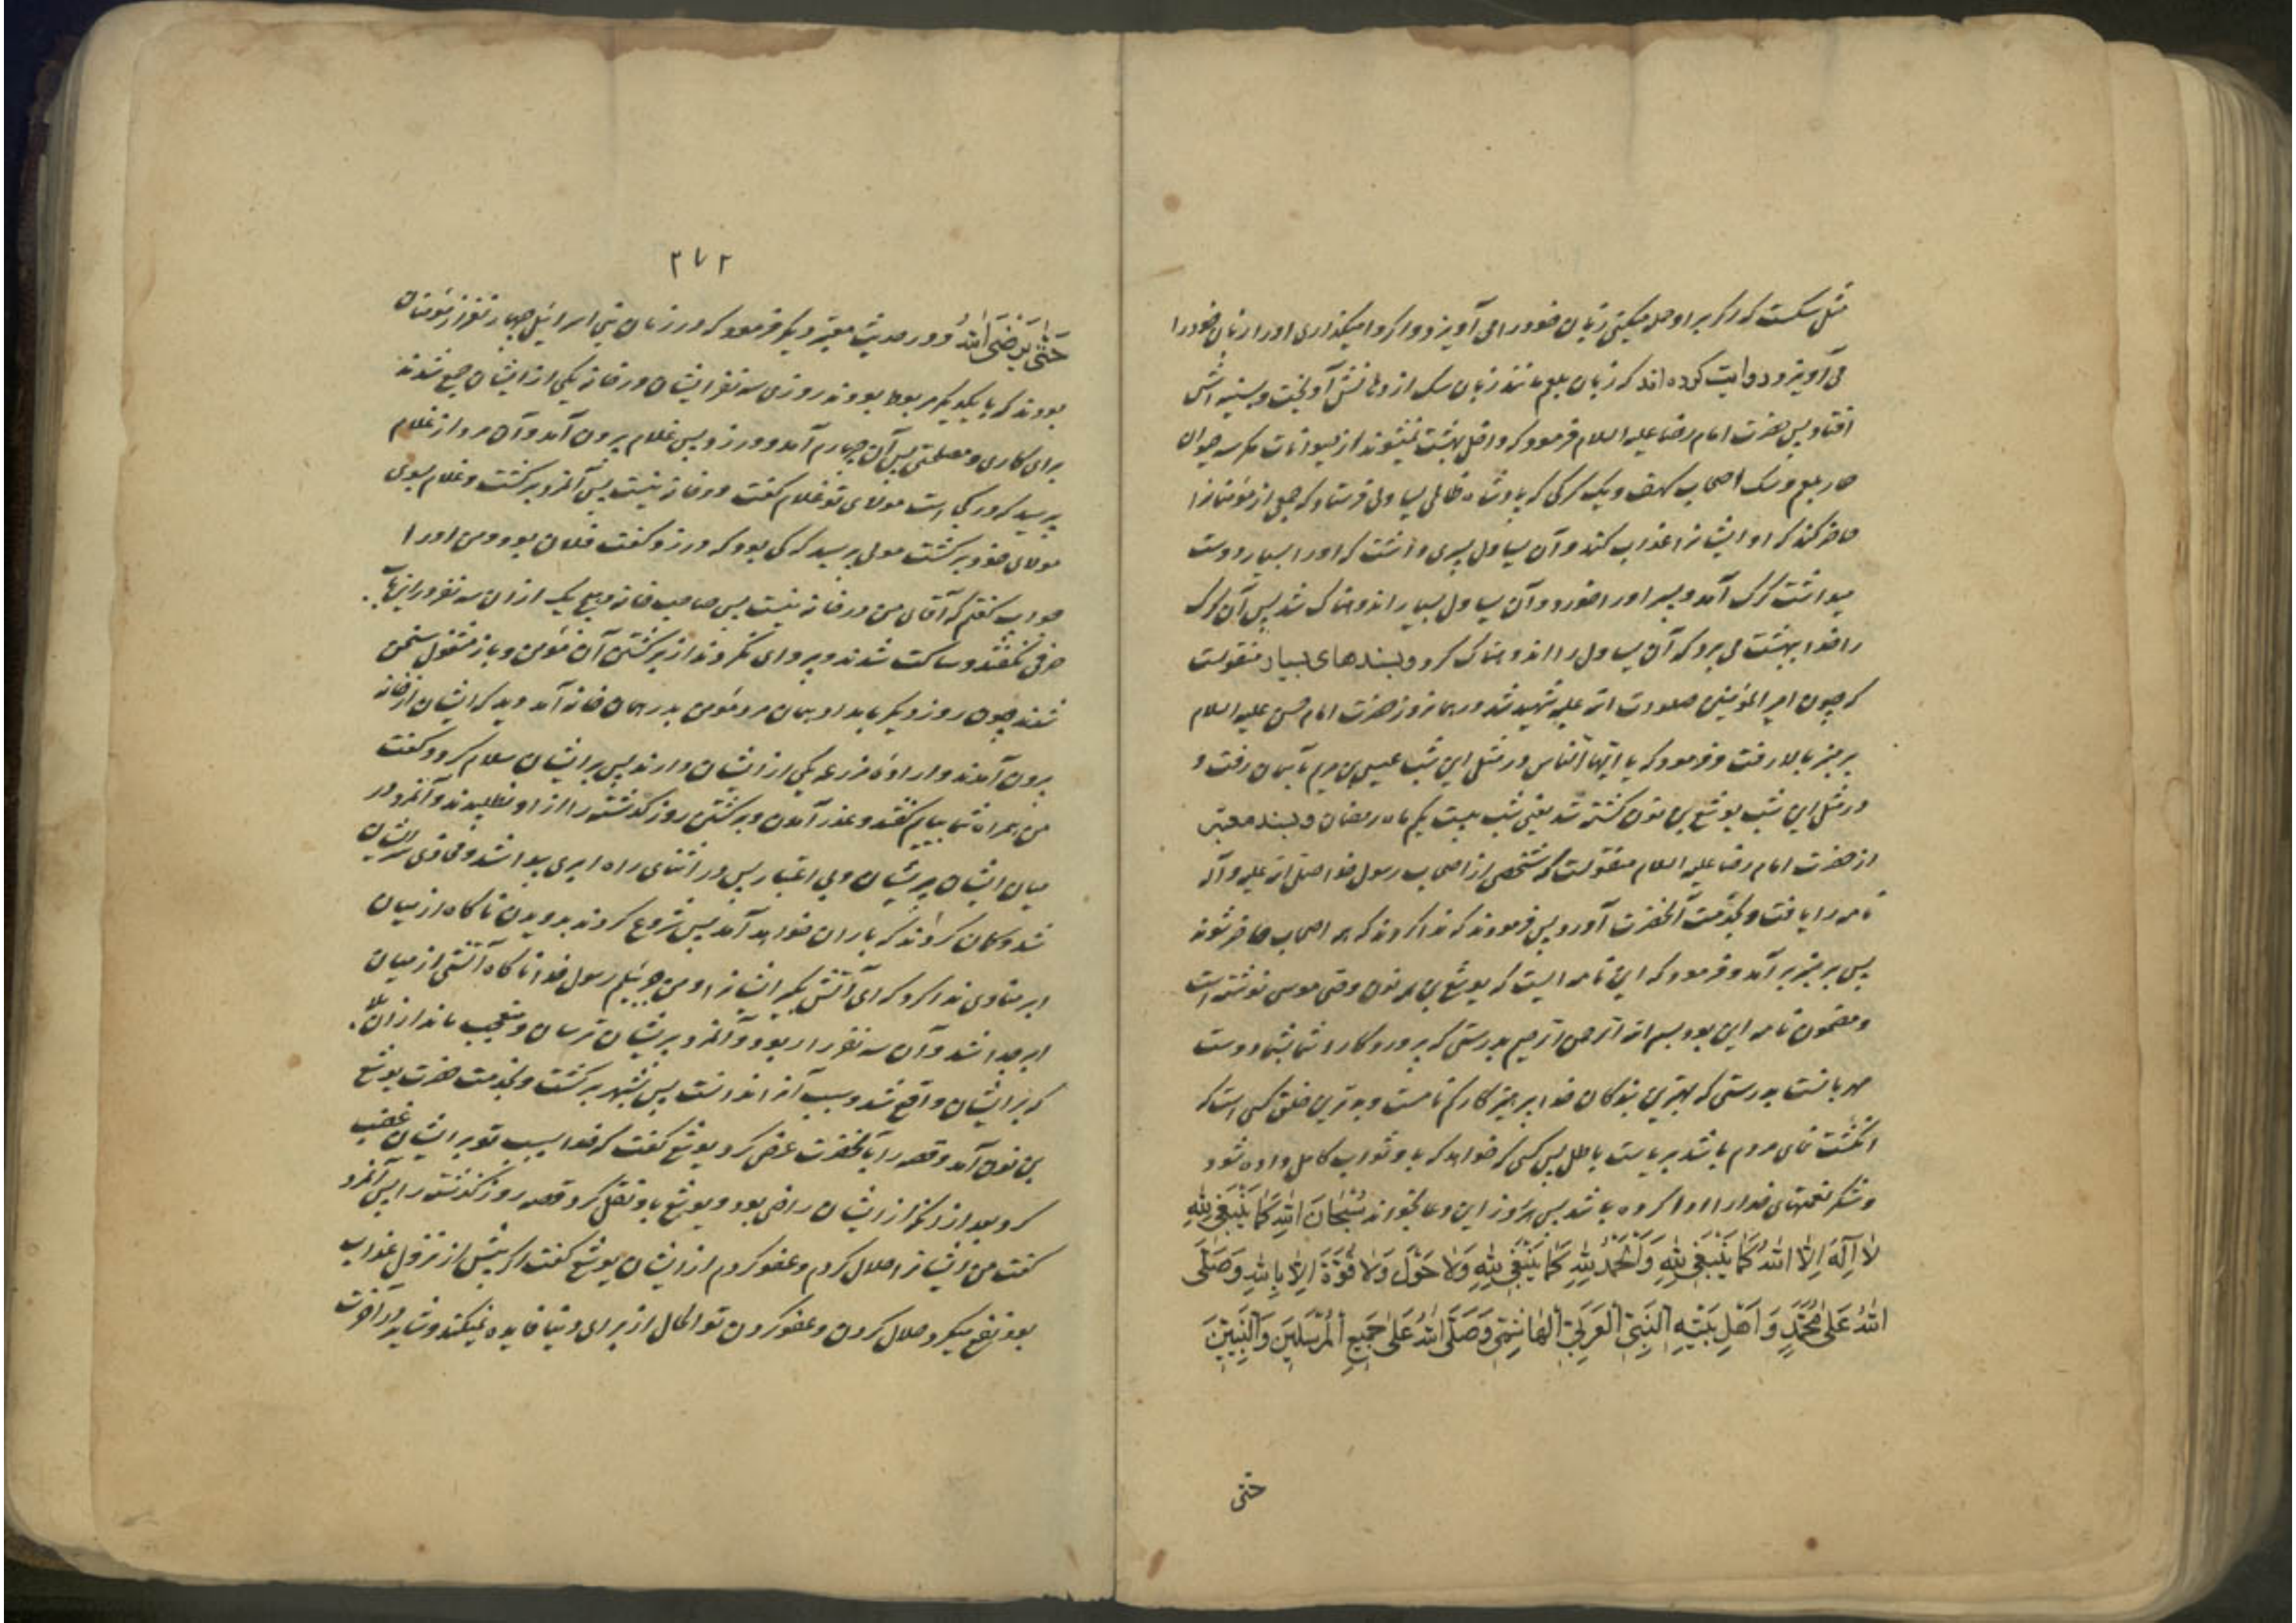 مثل سکست که اکر بر او حمله میکنی زبان خود را می آویزد و اکر وا میکذاری او را زبان خود را
می آویزد و روایت کرده اند که زبان بلعم مانند زبان سک از دهانش آویخت و بسینه اش
افتاد پس حضرت امام رضا علیه السلام فرمود که داخل بهشت نمیشوند از حیوانات مکر سه حیوان
حمار بلعم و سک اصحاب کهف و یک کرکی که پادشاه ظالمی یساولی فرستاد که جمعی از مؤمنانرا
حاضر کند که او ایشانرا عذاب کند و آن یساول پسری داشت که او را بسیار دوست
میداشت کرک آمد و پسر او را خورد و آن یساول بسیار اندوهناک شد پس آن کرک
را خدا ببهشت می برد که آن یساول را اندوهناک کرد و بسندهای بسیار منقولست
که چون امیر المؤمنین صلوات الله علیه شهید شد در همانروز حضرت امام حسن علیه السلام
بر منبر بالا رفت و فرمود که یا ایها الناس در مثل این شب عیسی بن مریم بآسمان رفت و
در مثل این شب یوشع بن نون کشته شد یعنی شب بیست یکم ماه رمضان و بسند معتبر
از حضرت امام رضا علیه السلام منقولست که شخصی از اصحاب رسول خدا صلی الله علیه وآله
نامه را یافت و بخدمت آنحضرت آورد پس فرمودند که ندا کردند که همه اصحاب حاضر شوند
پس بر منبر بر آمد و فرمود که این نامه ایست که یوشع بن نون وصی موسی نوشته است
و مضمون نامه این بود بسم الله الرحمن الرحیم بدرستی که پروردکار شما بشما دوست
مهربانست بدرستی که بهترین بندکان خدا پرهیزکار کم نامست و بدترین خلق کسی است که
انکشت نمای مردم باشد بریاست باطل پس کسی که خواهد که باو ثواب کامل داده شود
و شکر نعمتهای خدا را ادا کرده باشد پس هر روز این دعا بخواند سُبْحَانَ اللهِ کَمَا یَنْبَغِی لِلهِ
لَا اِلٰهَ اِلَّا اللهُ کَمَا یَنْبَغِی لِلهِ وَالْحَمْدُ لِلهِ کَمَا یَنْبَغِی لِلهِ وَلَا حَوْلَ وَلَا قُوَّةَ اِلَّا بِاللهِ وَصَلَّی
اللهُ عَلٰی مُحَمَّدٍ وَ اَهْلِ بَیْتِهِ النَّبِیِّ الْعَرَبِیِّ الْهَاشِمِیِّ وَصَلَّی اللهُ عَلٰی جَمِیعِ الْمُرْسَلِینَ وَالنَّبِیِّینَ
حتی
۲۷۲
حَتّٰی یَرْضَی اللهُ و در حدیث معتبر دیکر فرمود که در زمان بنی اسرائیل چهار نفر از مؤمنان
بودند که با یکدیکر مربوط بودند روزی سه نفر ایشان در خانه یکی از ایشان جمع شدند
برای کاری و مصلحتی پس آن چهارم آمد و در زد پس غلام برون آمد و آن مرد از غلام
پرسید که در کجاست مولای تو غلام کفت در خانه نیست پس آنمرد برکشت و غلام بسوی
مولای خود برکشت مولی پرسید که کی بود که در زد کفت فلان بود و من او را
جواب کفتم که آقای من در خانه نیست پس صاحب خانه و هیچ یک از ان سه نفر در این باب
حرفی نکفتند و ساکت شدند و پروای نکردند از برکشتن آن مؤمن و باز مشغول سخن
شدند چون روز دیکر بامداد همان مرد مؤمن بدر همان خانه آمد دید که ایشان از خانه
برون آمدند و اراده مزرعه یکی از ایشان دارند پس بر ایشان سلام کرد و کفت
من همراه شما بیایم کفتند و عذر آمدن و برکشتن روز کذشته را از او نطلبیدند و آنمرد در
میان ایشان پریشان و بی اعتبار پس در اثنای راه ابری پیدا شد و محاذی سر ایشان
شد و کمان کردند که باران خواهد آمد پس شروع کردند بدویدن ناکاه از میان
ابر منادی ندا کرد که ای آتش بکیر ایشانرا و من جبرئیلم رسول خدا ناکاه آتشی از میان
ابر جدا شد و آن سه نفر را ربود و آنمرد پریشان ترسان و متعجب ماند از ان
که بر ایشان واقع شد و سبب آنرا ندانست پس بشهر برکشت و بخدمت حضرت یوشع
بن نون آمد و قصه را بآنحضرت عرض کرد یوشع کفت که خدا بسبب تو بر ایشان غضب
کرد بعد از انکه از ایشان راضی بود و یوشع باو نقل کرد قصه روز کذشته را پس آنمرد
کفت من ایشانرا حلال کردم و عفو کردم از ایشان یوشع کفت اکر پیش از نزول عذاب
بود نفع میکرد حلال کردن و عفو کردن تو الحال از برای دنیا فایده نمیکند و شاید در آخرت